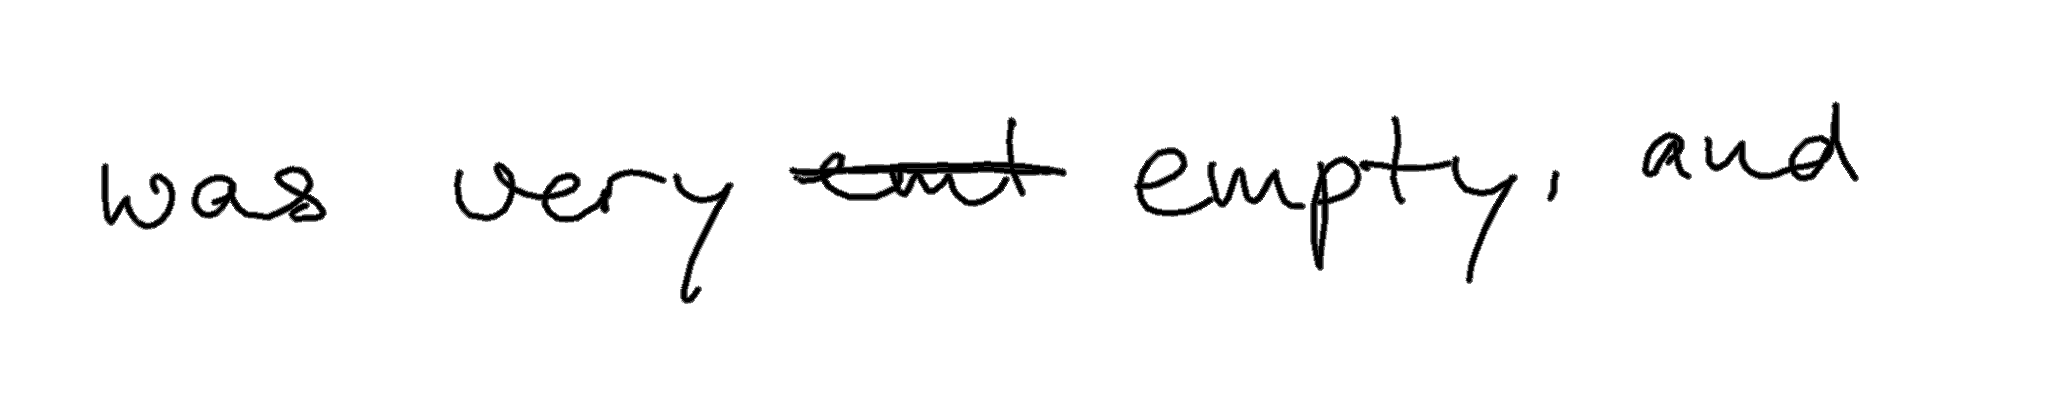 was very empty, and